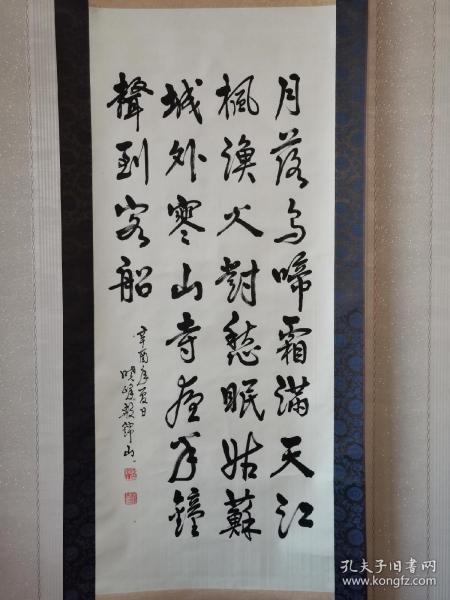 月落烏啼霜滿天江
楓漁火對愁眠姑蘇
城外寒山寺夜半鐘
聲到客船
辛酉年夏日
曉峰殷錦山
孔夫子旧书网
www.kongfz.com